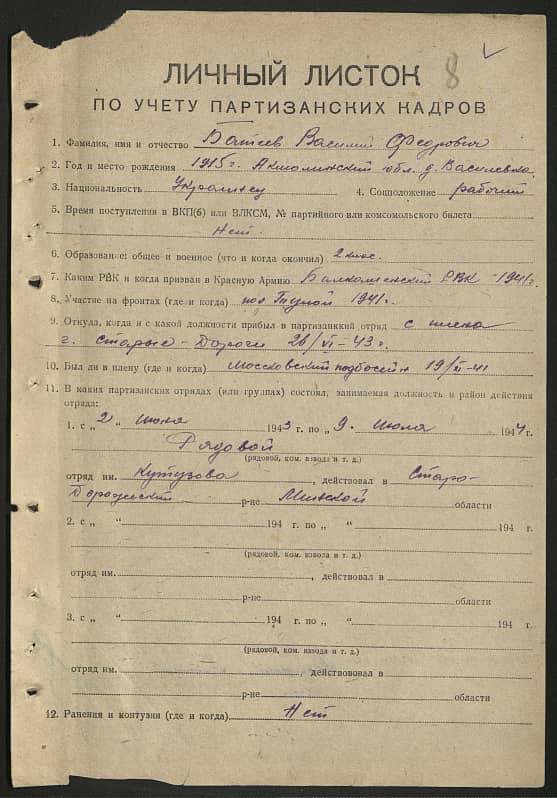 8
ЛИЧНЫЙ ЛИСТОК
ПО УЧЕТУ ПАРТИЗАНСКИХ КАДРОВ
1. Фамилия, имя и отчество Василий Федорович
2. Год и место рождения 1915г. Акмолинский обл. д. Василевка.
3. Национальность Украинец 4. Соцположение рабочий
5. Время поступления в ВКП(б) или ВЛКСМ, № партийного или комсомольского билета
Нет.
6. Образование: общее и военное (что и когда окончил) 2 клас.
7. Каким РВК и когда призван в Красную Армию РВК 1941г.
8. Участие на фронтах (где и когда) под Тулой 1941г.
9. Откуда, когда и с какой должности прибыл в партизанский отряд с плена
г. Старые-Дороги 26/VI-43г.
10. Был ли в плену (где и когда) Московский 19/XI-41
11. В каких партизанских отрядах (или группах) состоял, занимаемая должность и район действия
отряда:
1. с „2 “ июня 1943 г. по „9. июля 1944 г.
Рядовой
(рядовой, ком. взвода и т. д.)
отряд им. Кутузова , действовал в Старо-
Дорожский р-не Минской области
2. с „ “ 194 г. по „ “ 194 г.
(рядовой, ком. взвода и т. д.)
отряд им. , действовал в
р-не области
3. с „ “ 194 г. по „ “ 194 г.
(рядовой, ком. взвода и т. д.)
отряд им. , действововал в
р-не области
12. Ранения и контузии (где и когда) Нет